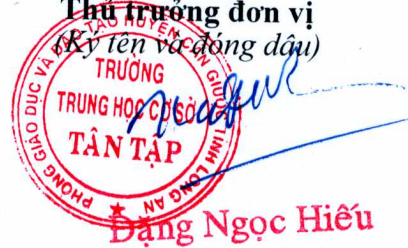 Thủ trưởng đơn vị
(Ký tên và đóng dấu)
PHÒNG GIÁO DỤC VÀ ĐÀO TẠO HUYỆN CẦN GIUỘC TỈNH LONG AN
TRƯỜNG
TRUNG HỌC CƠ SỞ
TÂN TẬP
Đặng Ngọc Hiếu